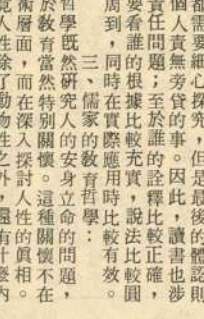 都需要細心探究，但是最後的體認則
個人責無旁貸的事。因此，讀書也涉
責任問題；至於誰的詮釋比較正確，
要看誰的根據比較充實，說法比較圓
周到，同時在實際應用時比較有效。
三、儒家的教育哲學：
哲學既然研究人的安身立命的問題，
於教育當然特別關懷。這種關懷不在
術層面，而在深入探討人性的真相。
竟人性除了動物性之外，還有什麼內